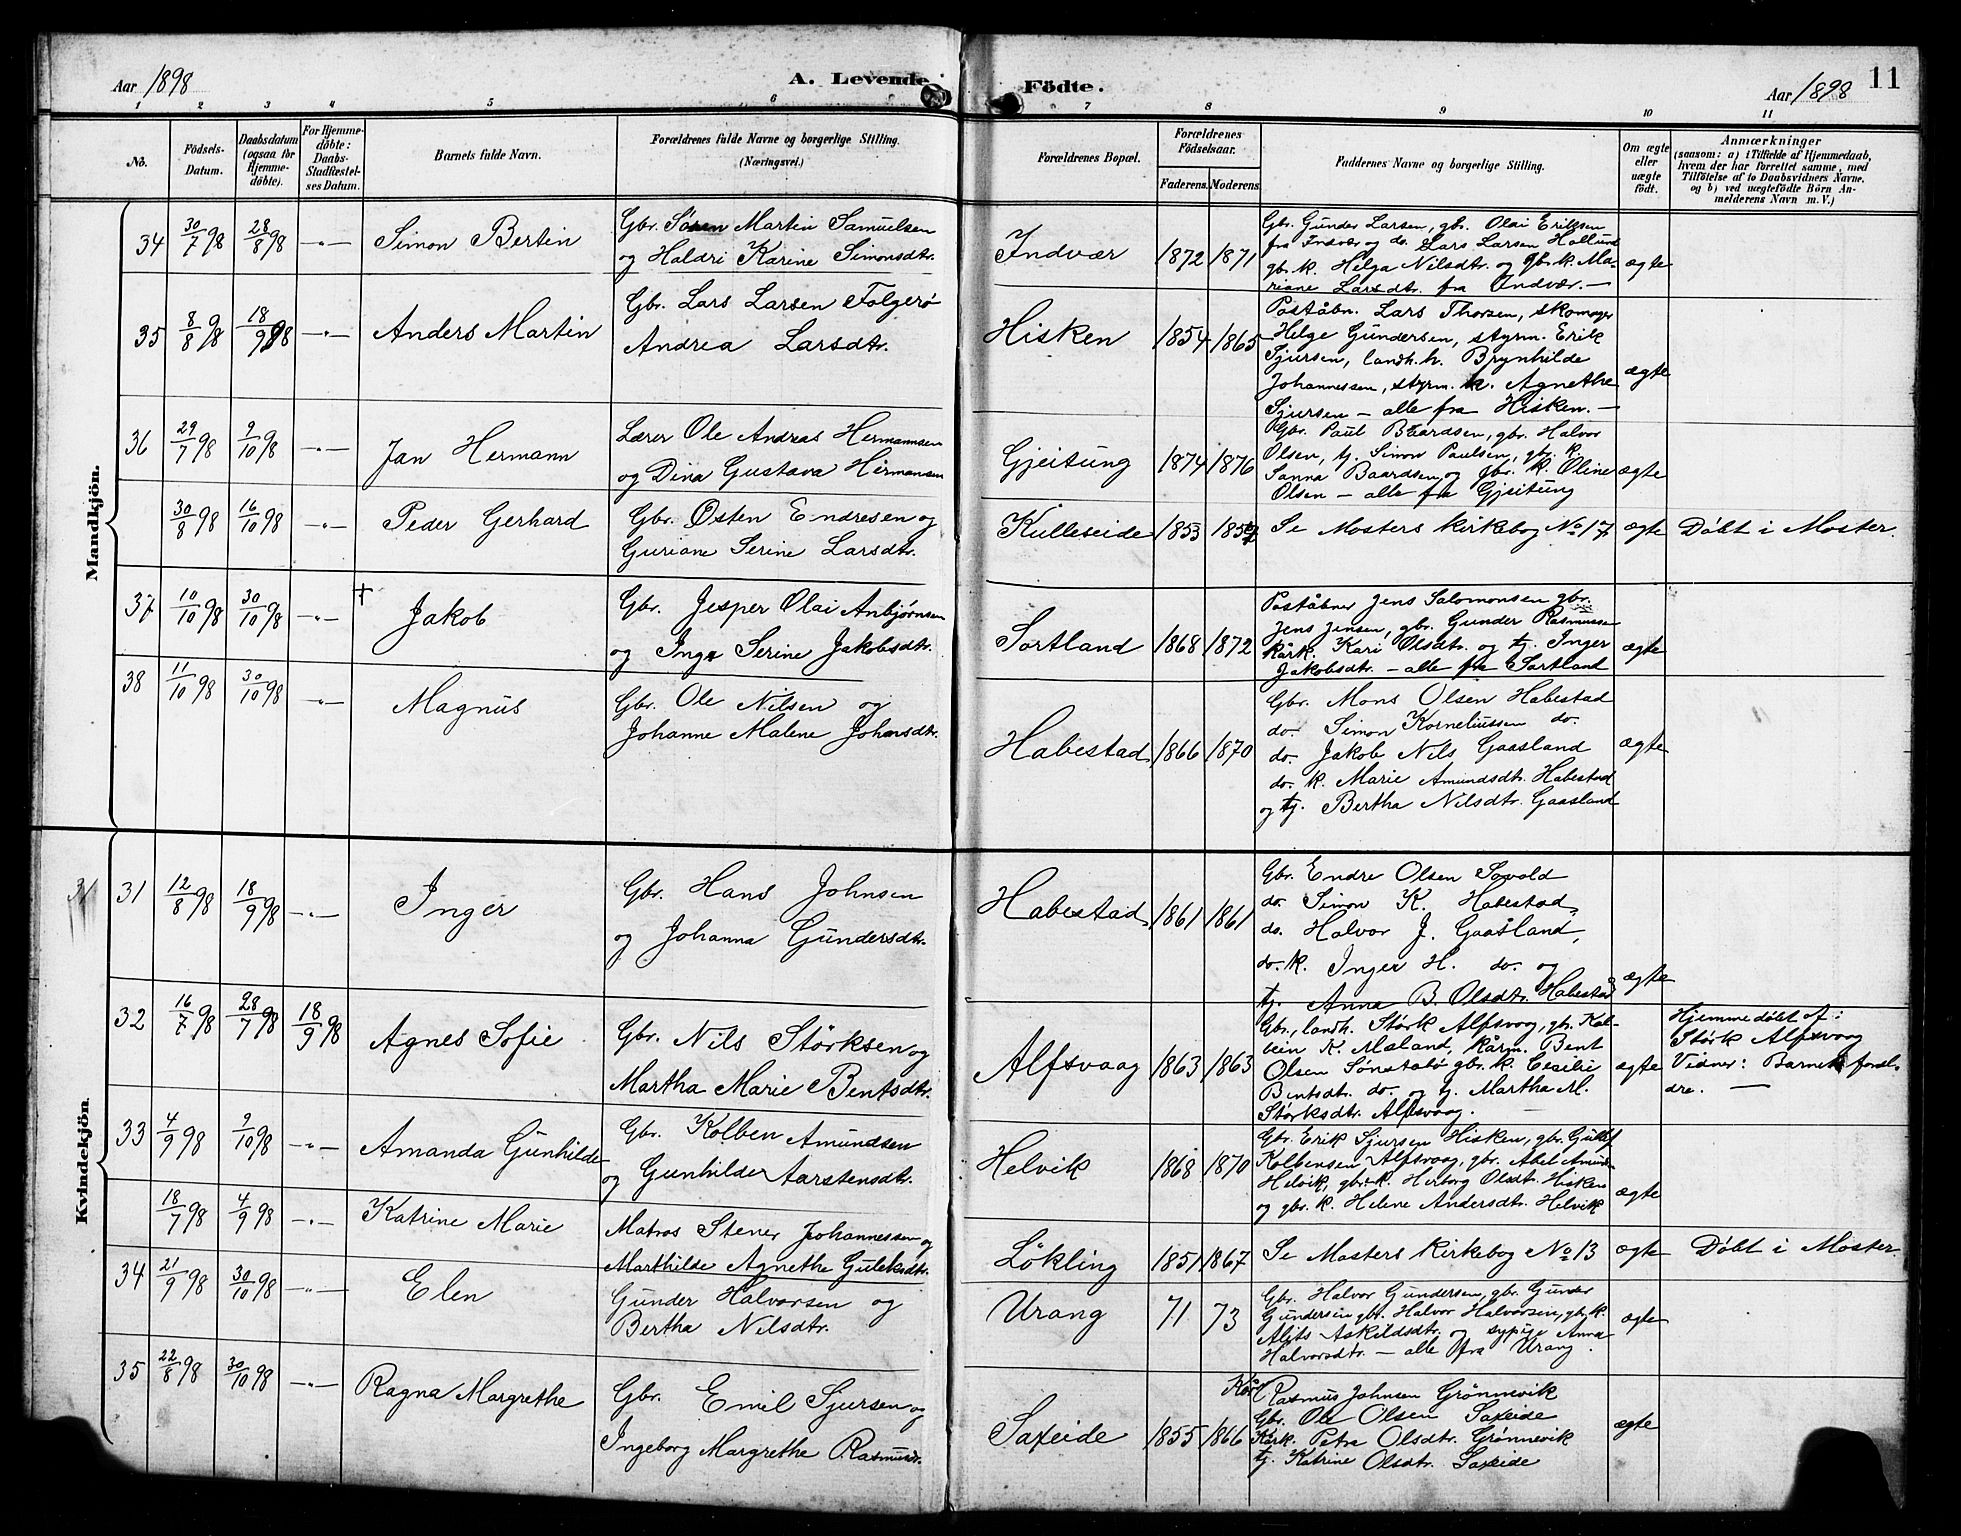 Aar 1898
A. Levende
Födte.
Aar 1898
11
1 2 3 4 5 6 7 8 9 10 11
No.
Födsels-
Datum.
Daabsdatum
(ogsaa for
Hjemme-
döbte).
For Hjemme-
döbte:
Daabs-
Stadfæstel-
ses Datum.
Barnets fulde Navn.
Forældrenes fulde Navne og borgerlige Stilling.
(Næringsvei.)
Forældrenes Bopæl.
Forældrenes
Födselsaar.
Faderens. Moderens.
Faddernes Navne og borgerlige Stilling.
Om ægte
eller
uægte
födt.
Anmærkninger
(saasom: a) i Tilfælde af Hjemmedaab,
hvem der har forrettet samme, med
Tilföielse af to Daabsvidners Navne,
og b) ved uegtefödte Börn An-
melderens Navn m. V.)
Mandkjön.
34 30/7 98 28/8 98 -"- Simon Bertin
Gbr. Søren Martin Samuelsen
og Haldri Karine Simonsdtr.
Indvær 1872 1871
Gbr. Gunder Larsen, gbr. Olai Eriksen
fra Indvær og do. Lars Larsen Hollund
gbr. k. Helga Nilsdtr. og gbr. k. Ma-
riane Larsdtr. fra Indvær. -
ægte
35 8/8 98 18/9 98 -"- Anders Martin
Gbr. Lars Larsen Folgerö
Andrea Larsdtr.
Hisken 1854 1865
Poståbn. Lars Thorsen, skomager
Helge Gundersen, styrm. Erik
Sjursen, landh. h. Brynhilde
Johannessen, styrm. k. Agnethe
Sjursen - alle fra Hisken. -
ægte
36 29/7 98 9/10 98 -"- Jan Hermann
Lærer Ole Andreas Hermannsen
og Dina Gustava Hermansen
Gjeitung 1874 1876
Gbr. Paul Baardsen, gbr. Halvor
Olsen, tj. Simon Paulsen, gbr. k.
Sanna Baardsen og gbr. k. Oline
Olsen - alle fra Gjeitung
ægte
30/8 98 16/10 98 -"- Peder Gerhard
Gbr. Østen Endresen og
Guriane Serine Larsdtr.
Kulleseide 1853
Se Mosters Kirkebog No 17 ægte Döbt i Moster.
37 10/10 98 30/10 98 -"- † Jakob
Gbr. Jesper Olai Anbjørnsen
og Inga Serine Jakobsdtr.
Sortland 1868 1872
Poståbner Jens Salomonsen gbr.
Jens Jensen, gbr. Gunder Rasmussen
kårk. Kari Olsdtr. og tj. Inger
Jakobsdtr. - alle fra Sortland
ægte
38 11/10 98 30/10 98 -"- Magnus
Gbr. Ole Nilsen og
Johanne Malene Johansdtr.
Habestad 1866 1870
Gbr. Mons Olsen Habestad
do. Simon Korneliussen do.
do. Jakob Nils Gaasland
do. k. Marie Amundsdtr. Habestad
og tj. Bertha Nilsdtr. Gaasland
ægte
Kvindekjön.
31 12/8 98 18/9 98 -"- Inger
Gbr. Hans Johnsen
og Johanna Gundersdtr.
Habestad 1861 1861
Gbr. Endre Olsen
do. Simon K. Habestad
do. Halvor J. Gaasland,
do. k. Inger H. do. og
tj. Anna B. Olsdtr. Habestad
ægte
32 16/7 98 28/7 98 18/9 98 Agnes Sofie
Gbr. Nils Störksen og
Martha Marie Bentsdtr.
Alfsvaag 1863 1863
Gbr., landh. Störk Alfsvaag, gbr. Kol-
bein K. Mæland, kårm. Bent
Olsen Sönstabö gbr. k. Cesilie
Bentsdtr. do. og tj. Martha M.
Störksdtr. Alfsvaag.
ægte
Hjemmedöbt af:
Störk Alfsvaag
Vidner: Barnets foræl-
dre. -
33 4/9 98 9/10 98 -"- Amanda Gunhilde
Gbr. Kolben Amundsen
og Gunhilde Aarstensdtr.
Helvik 1868 1870
Gbr. Erik Sjursen Hisken, gbr. Gullef
Kolbensen Alfsvaag, gbr. Abel Amund-
Helvik, gbr. k. Herborg Olsdtr. Hisken
og gbr. k. Helene Andersdtr. Helvik
ægte
18/7 98 4/9 98 -"- Katrine Marie
Matros Stener Johannessen og
Marthilde Agnethe Guleksdtr.
Lökling 1851 1867
Se Mosters Kirkebog No 13 ægte Döbt i Moster
34 21/9 98 30/10 98 -"- Elen
Gunder Halvorsen og
Bertha Nilsdtr.
Urang 71 73
Gbr. Halvor Gundersen, gbr. Gunder
Gundersen gbr. Halvor Halvorsen, gbr. k.
Alits Askildsdtr. og sypige Anna
Halvorsdtr. - alle fra Urang.
ægte
35 22/8 98 30/10 98 -"- Ragna Margrethe
Gbr. Emil Sjursen og
Ingeborg Margrethe Rasmusdr.
Saxeide 1855 1866
Kår Rasmus Johnsen Grönnevik
Gbr. Ole Olsen Saxeide
Kårk. Petra Olsdtr. Grönnevik
tj. Katrine Olsdtr. Saxeide
ægte